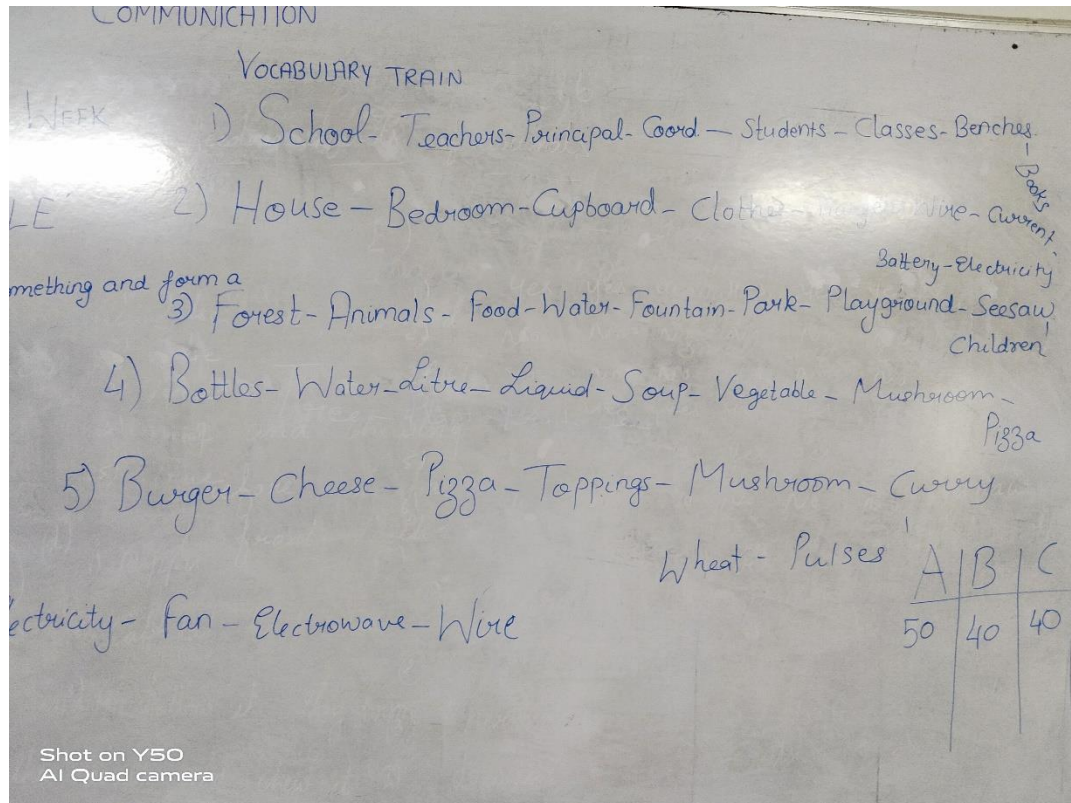 COMMUNICATION
VOCABULARY TRAIN
WEEK
1) School - Teachers - Principal - Coord - Students - Classes - Benches
- Books
LE
2) House - Bedroom - Cupboard - Clothes - Wire - Current
Battery - Electricity
mething and form a
3) Forest - Animals - Food - Water - Fountain - Park - Playground - Seesaw
Children
4) Bottles - Water - Litre - Liquid - Soup - Vegetable - Mushroom -
Pizza
5) Burger - Cheese - Pizza - Toppings - Mushroom - Curry
Wheat - Pulses
A B C
50 40 40
ectricity - Fan - Electrowave - Wire
Shot on Y50
AI Quad camera